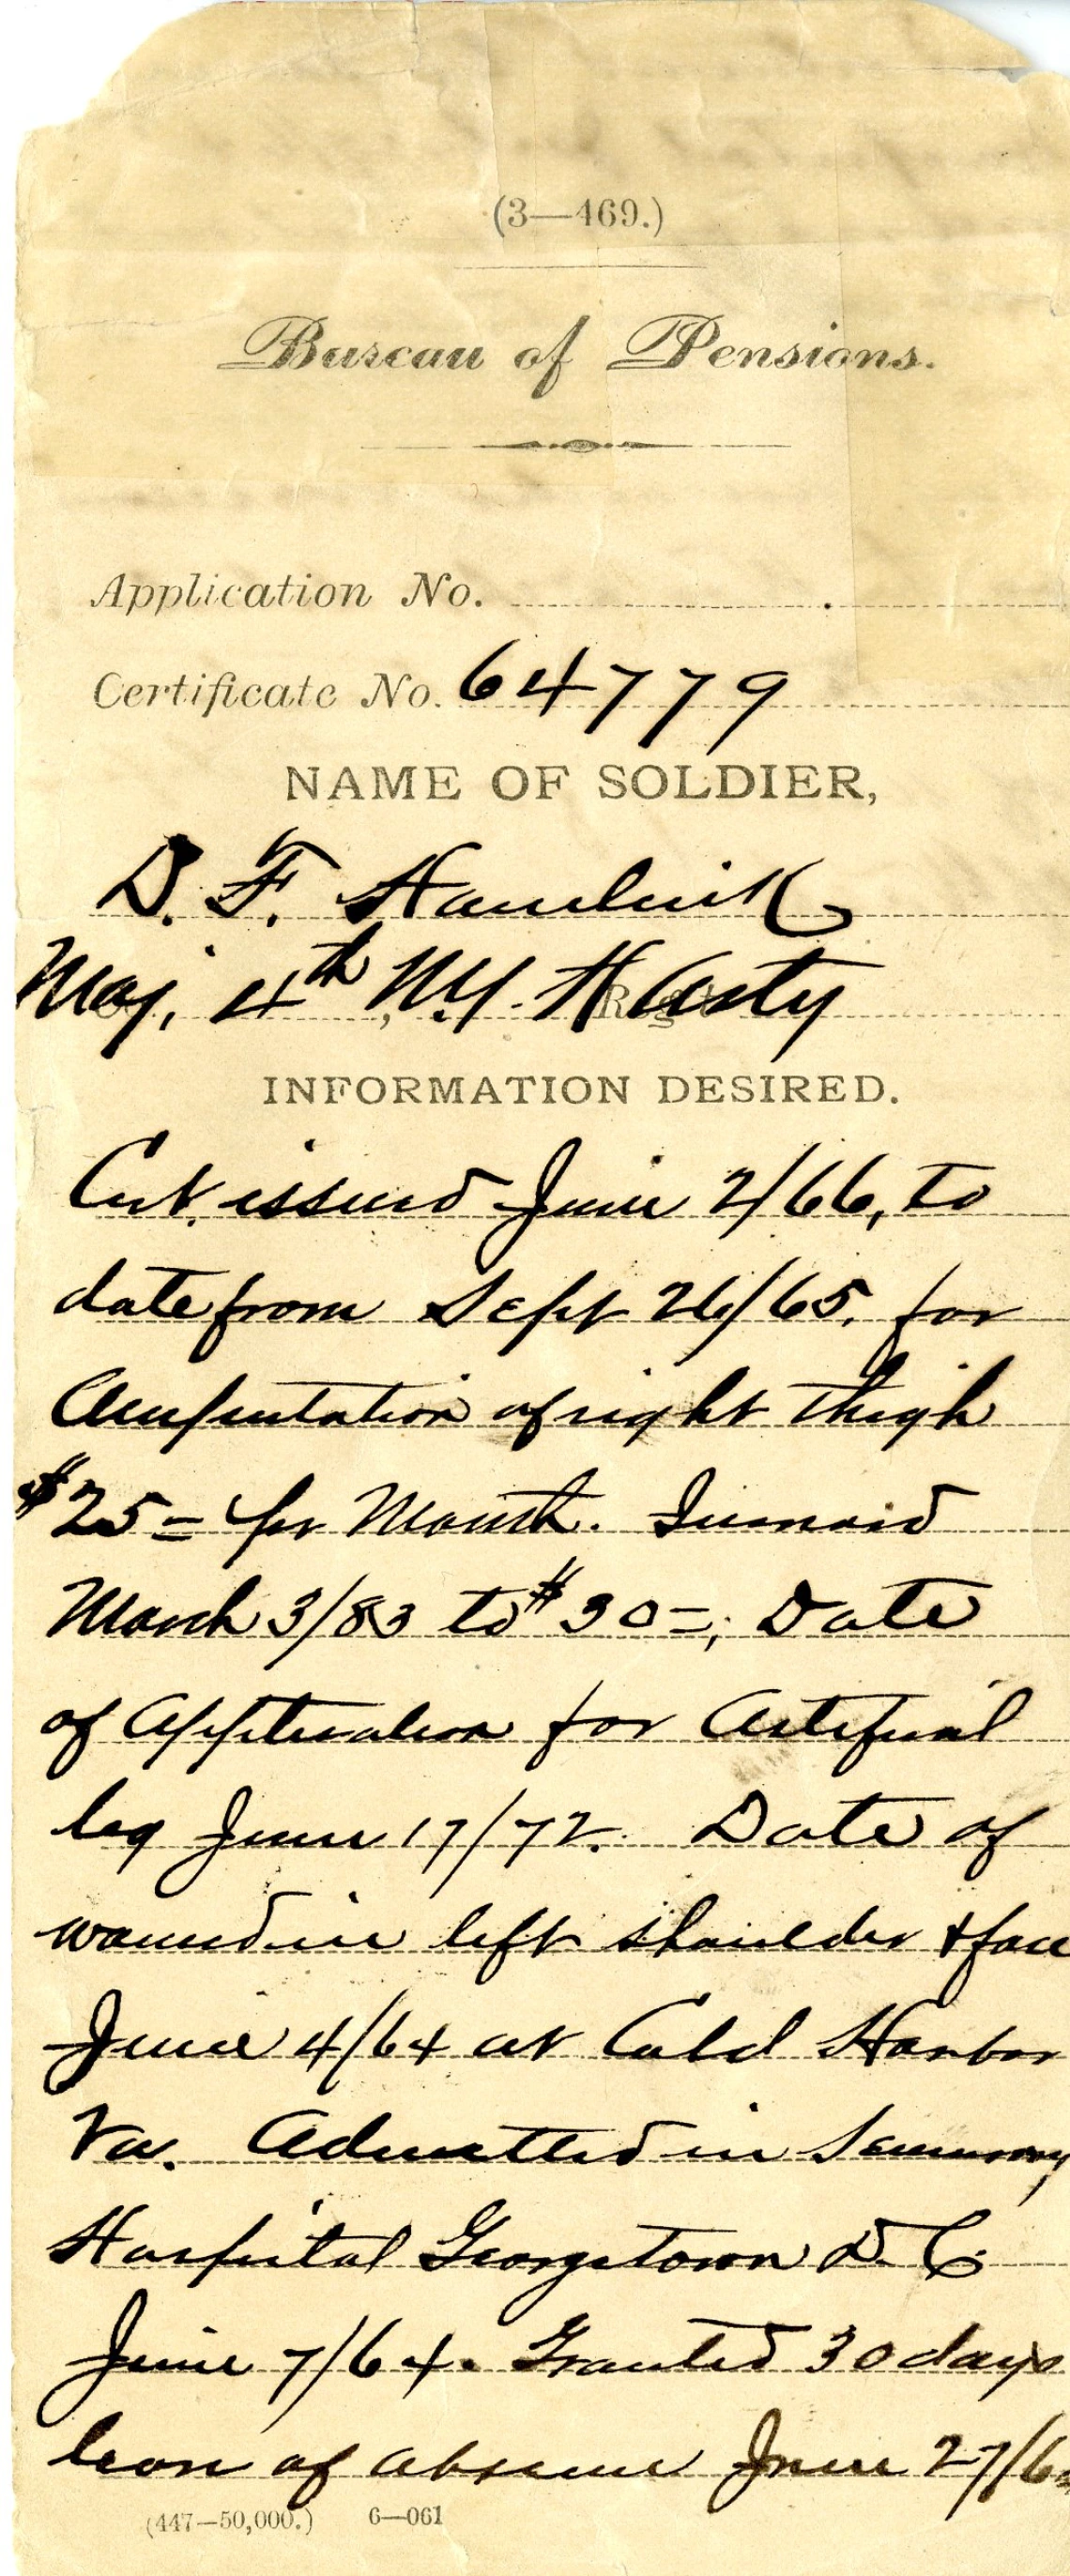 (3—469.)
Bureau of Pensions.
Application No.
Certificate No. 64779
NAME OF SOLDIER,
D. F. Hamlink
Maj. 4th N.Y. H Arty
INFORMATION DESIRED.
Cert. issued June 2/66, to
date from Sept 26/65. for
Amputation of right thigh
$25= per Month. Increased
March 3/83 to $30=; Date
of Application for Artificial
leg June 17/72. Date of
wound in left shoulder & face
June 4/64 at Cold Harbor
Va. Admitted in Seminary
Hospital Georgetown D.C.
June 7/64. Granted 30 days
leave of absence June 27/64
(447—50,000.) 6—061